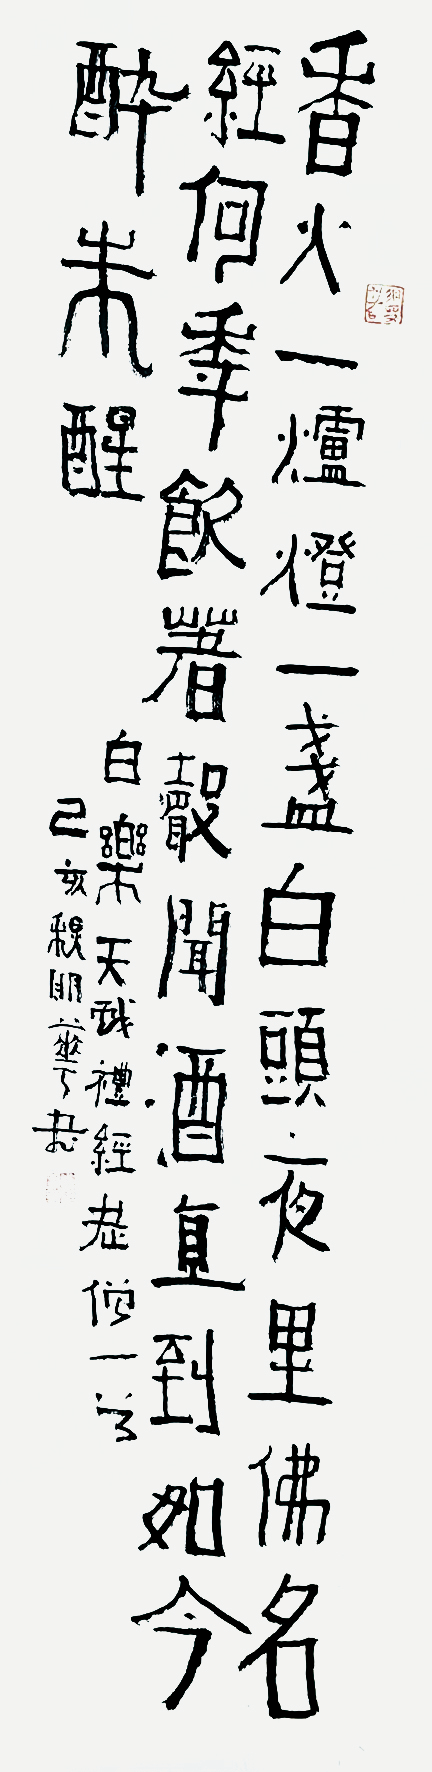 香火一爐燈一盞白頭夜里佛名
經何年飲著聲聞酒直到如今
醉未醒
白樂天戲禮經老僧一首
己亥明華書